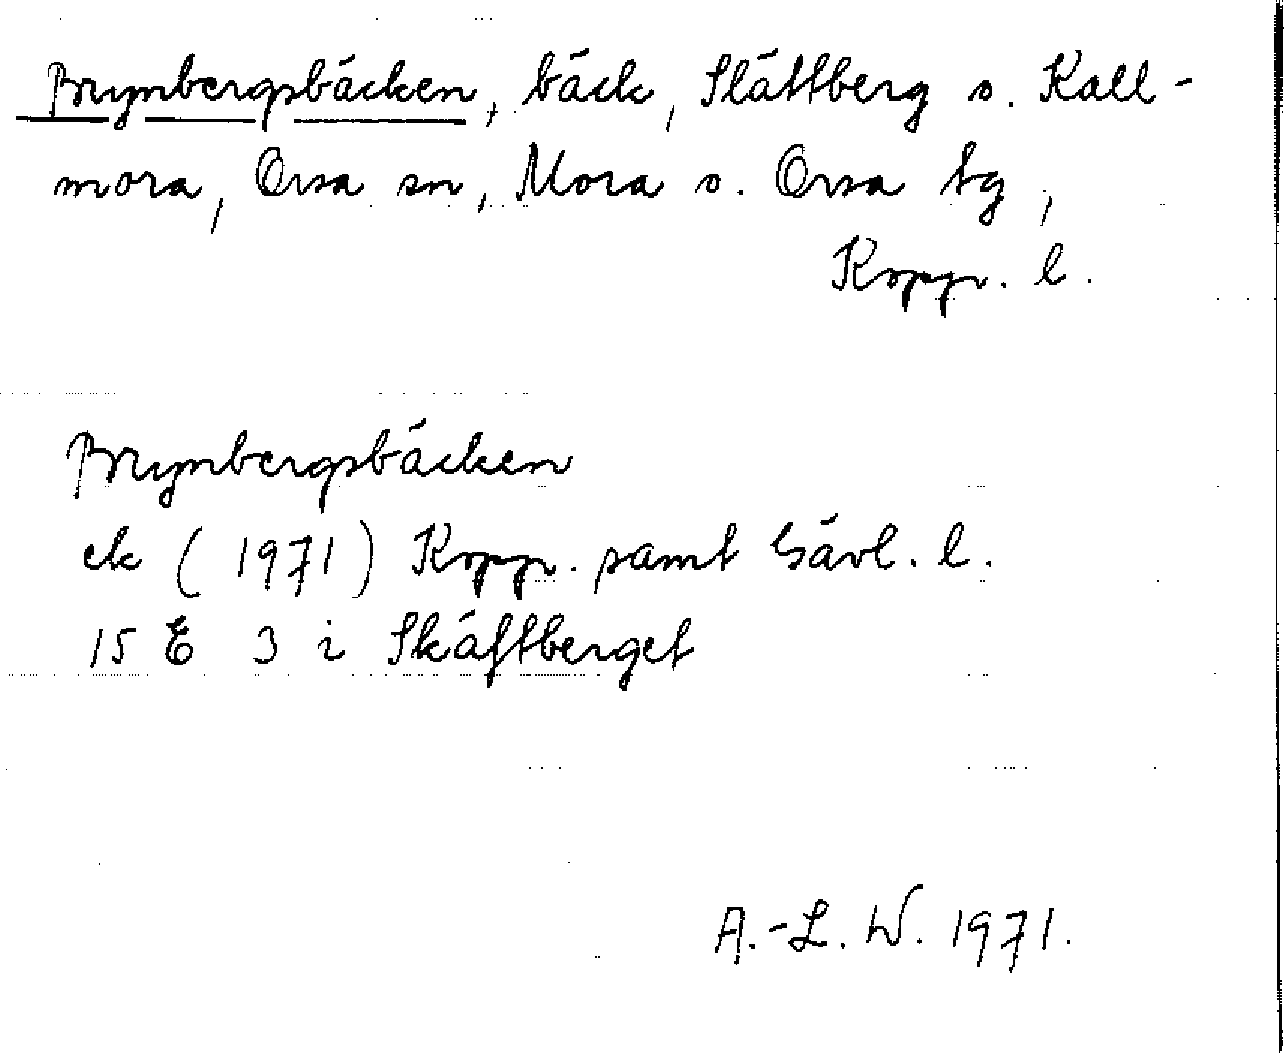 Brynbergsbäcken, bäck, Slättberg o. Kall-
mora, Orsa sn, Mora o. Orsa tg,
Kopp. l.
Brynbergsbäcken
ek (1971) Kopp. samt Gävl. l.
15 E 3 i Skäftberget
A.-L. W. 1971.